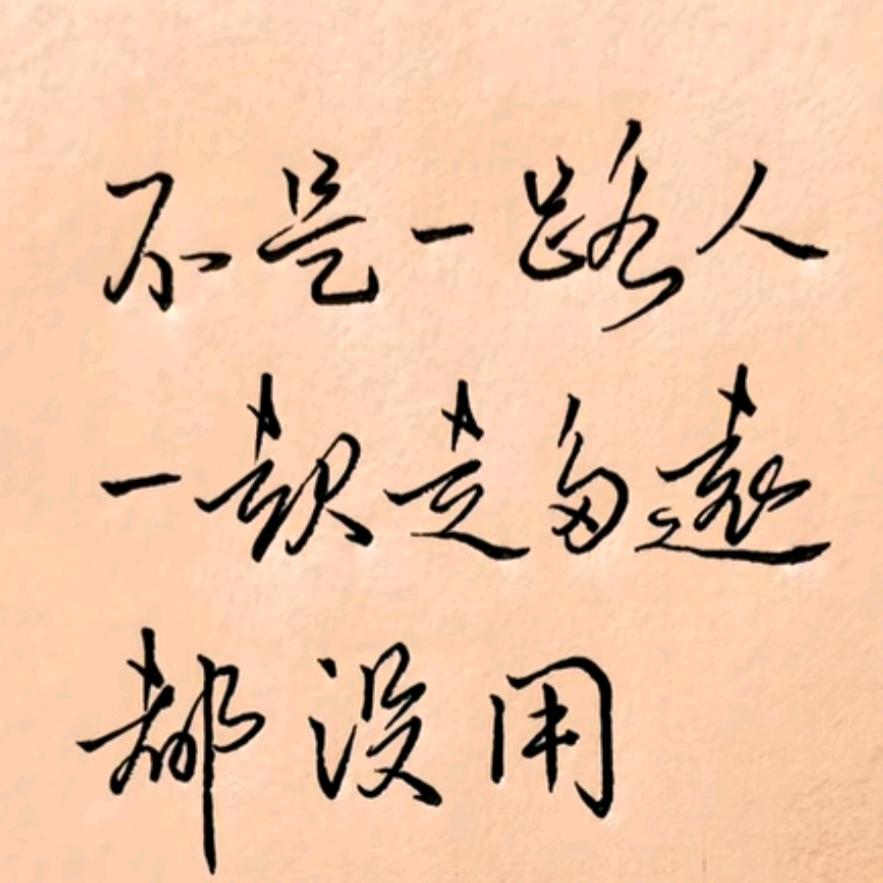 不是一路人
一起走多遠
都没用